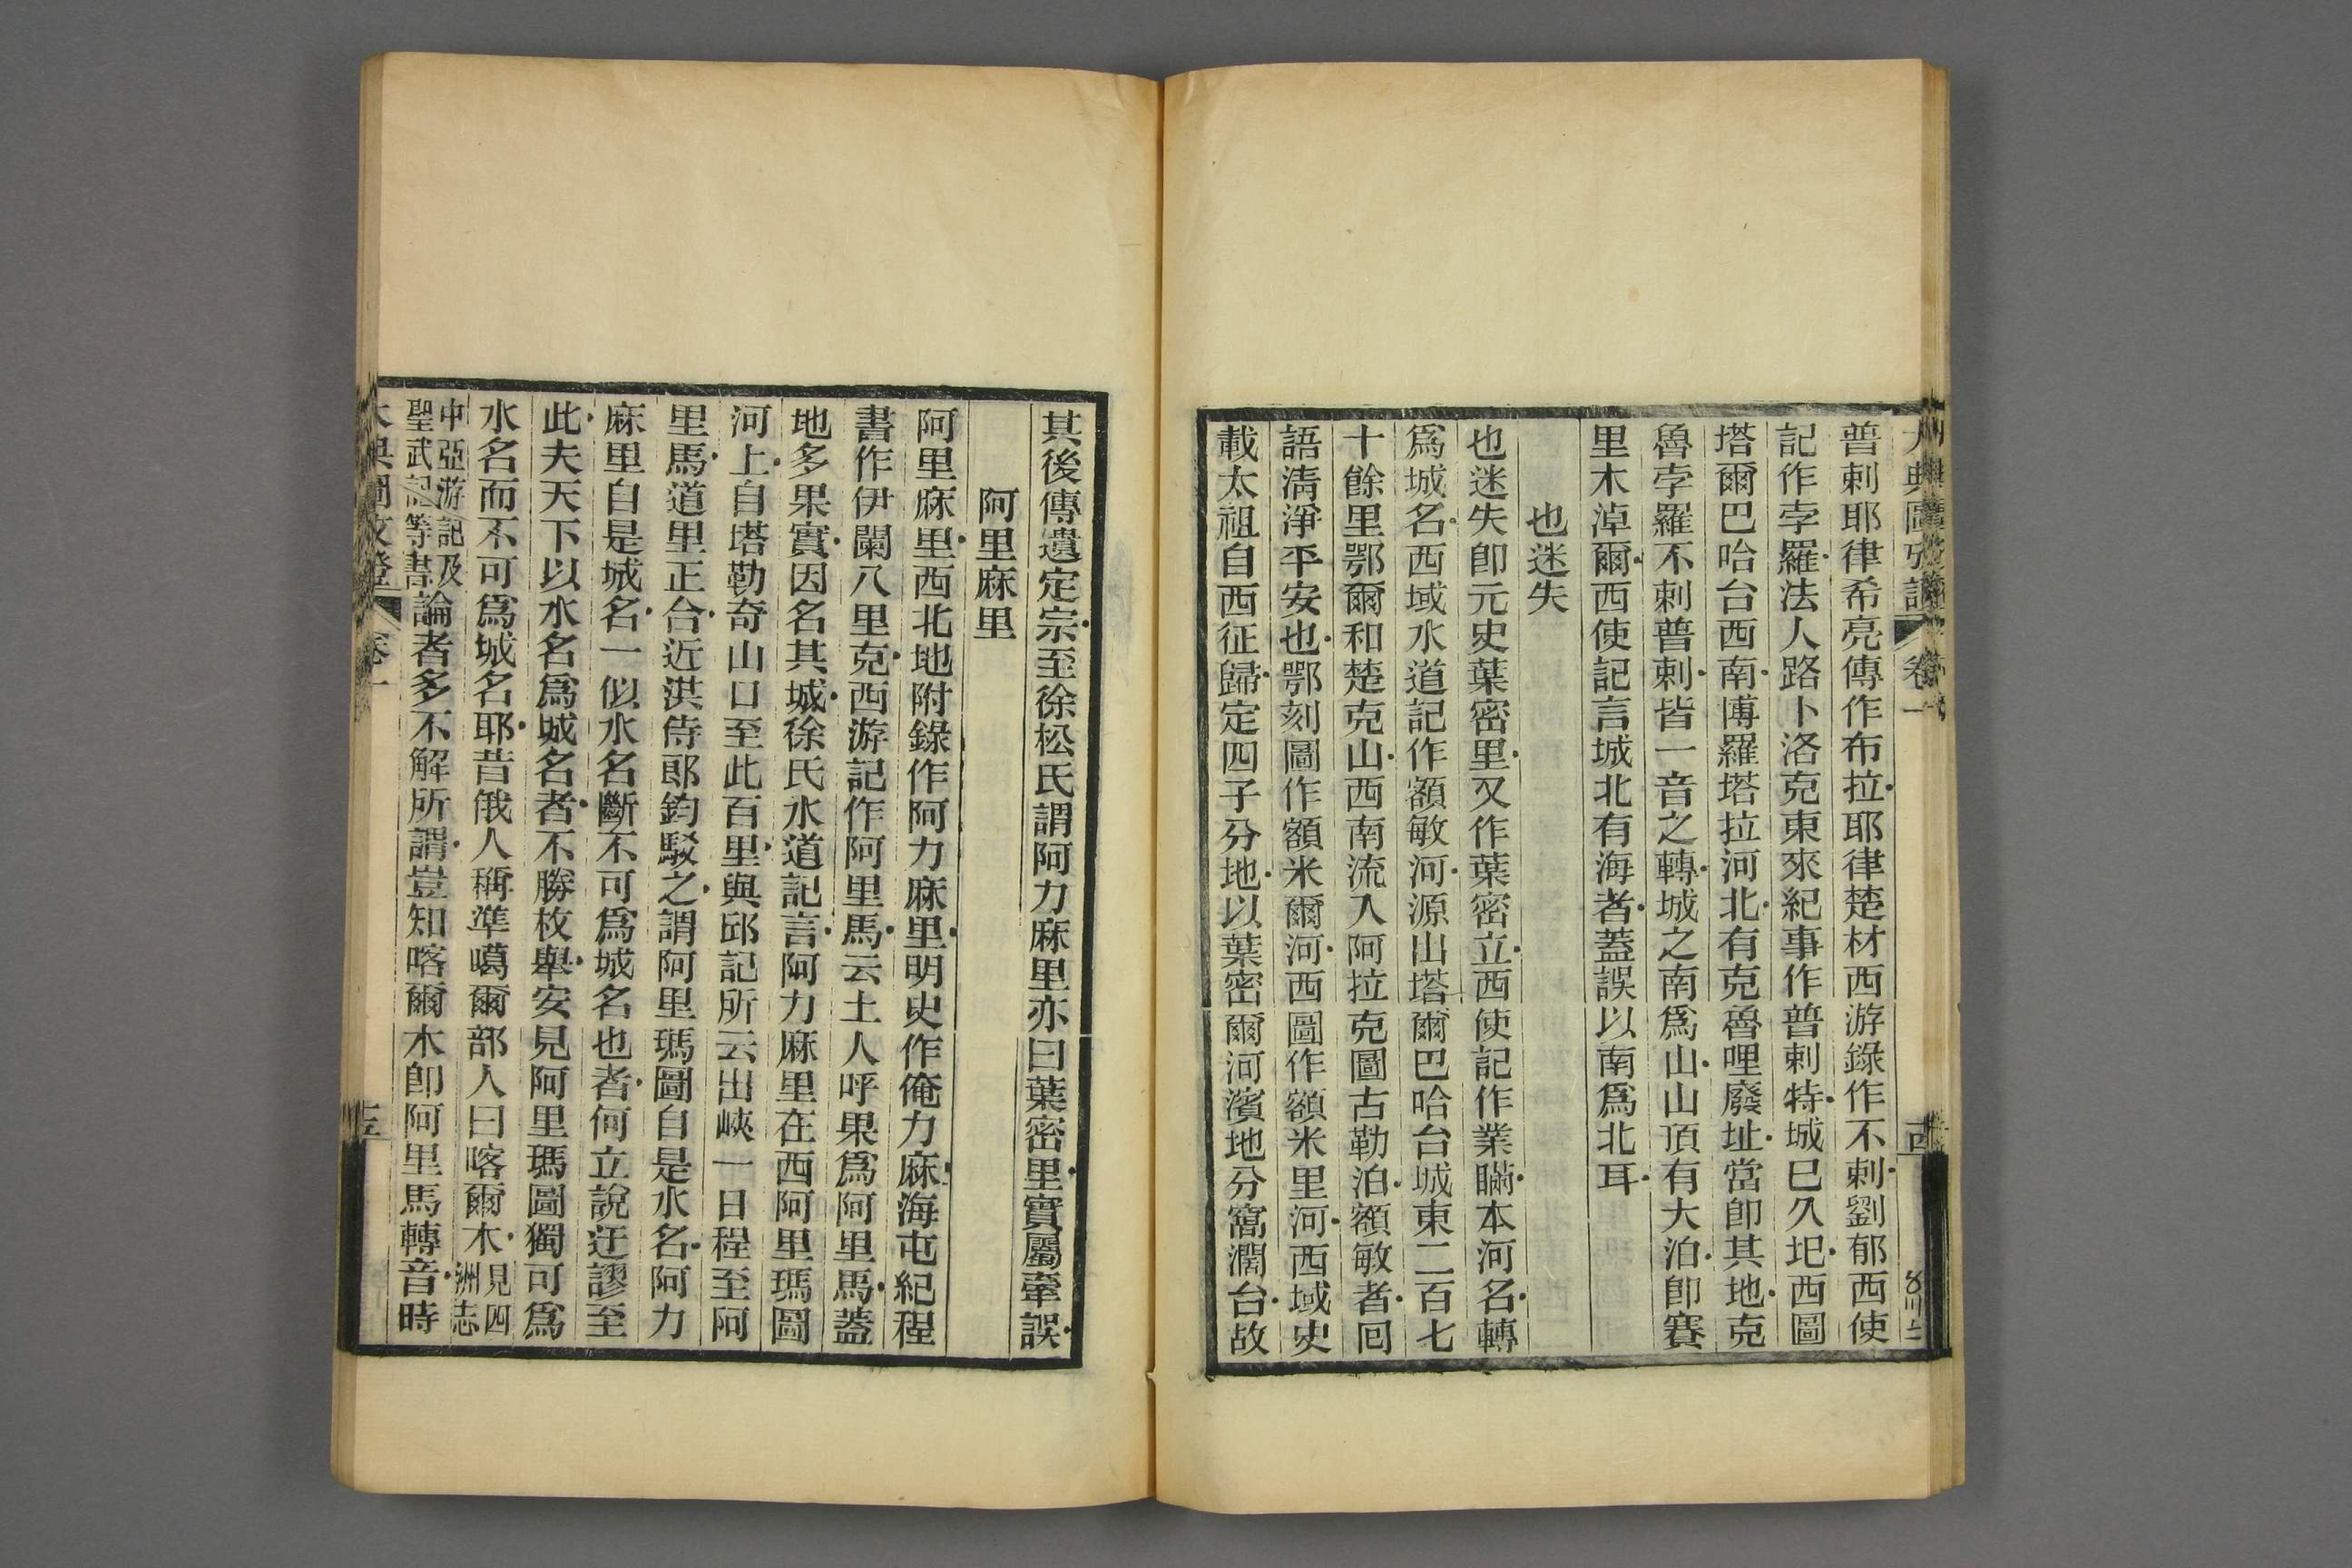 大典圖攷證 卷一
普剌耶律希亮傳作布拉耶律楚材西游錄作不剌劉郁西使
記作孛羅法人路卜洛克東來紀事作普剌特城已久圯西圖
塔爾巴哈台西南博羅塔拉河北有克魯哩廢址當卽其地克
魯孛羅不剌普剌皆一音之轉城之南爲山山頂有大泊卽賽
里木淖爾西使記言城北有海者蓋誤以南爲北耳
也迷失
也迷失卽元史葉密里又作葉密立西使記作業瞞本河名轉
爲城名西域水道記作額敏河源山塔爾巴哈台城東二百七
十餘里鄂爾和楚克山西南流入阿拉克圖古勒泊額敏者囘
語淸淨平安也鄂刻圖作額米爾河西圖作額米里河西域史
載太祖自西征歸定四子分地以葉密爾河濱地分窩濶台故
其後傳遺定宗至徐松氏謂阿力麻里亦曰葉密里實屬牽誤
阿里麻里
阿里麻里西北地附錄作阿力麻里明史作俺力麻海屯紀程
書作伊闌八里克西游記作阿里馬云土人呼果爲阿里馬蓋
地多果實因名其城徐氏水道記言阿力麻里在西阿里瑪圖
河上自塔勒奇山口至此百里與邱記所云出峽一日程至阿
里馬道里正合近洪侍郎鈞駁之謂阿里瑪圖自是水名阿力
麻里自是城名一似水名斷不可爲城名也者何立說迂謬至
此夫天下以水名爲城名者不勝枚舉安見阿里瑪圖獨可爲
水名而不可爲城名耶昔俄人稱準噶爾部人曰喀爾木見四洲志
中亞游記及聖武記等書論者多不解所謂豈知喀爾木卽阿里馬轉音時